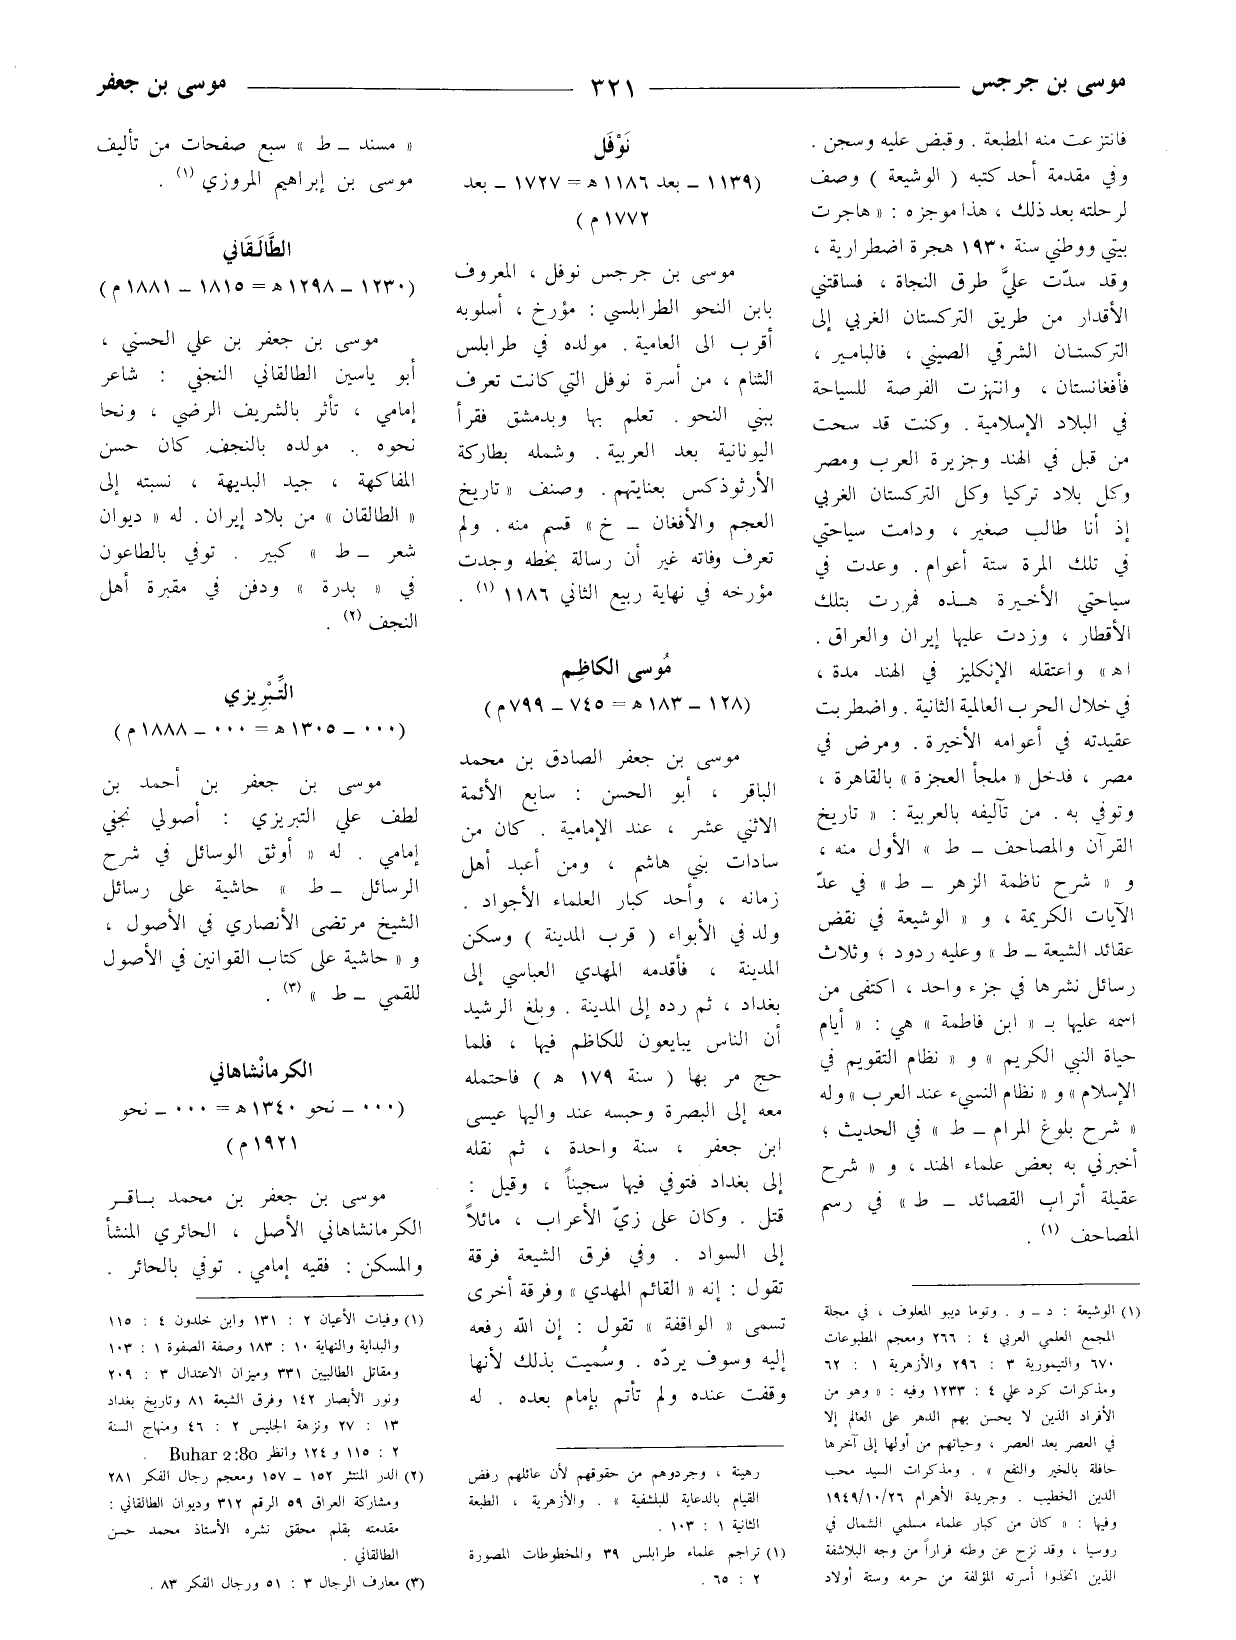 موسى بن جرجس ٣٢١ موسى بن جعفر
فانتزعت منه المطبعة . وقبض عليه وسجن .
وفي مقدمة أحد كتبه ( الوشيعة ) وصف
لرحلته بعد ذلك ، هذا موجزه : « هاجرت
بيتي ووطني سنة ١٩٣٠ هجرة اضطرارية ،
وقد سدّت عليَّ طرق النجاة ، فساقتني
الأقدار من طريق التركستان الغربي إلى
التركستان الشرقي الصيني ، فالبامير ،
فأفغانستان ، وانتهزت الفرصة للسياحة
في البلاد الإسلامية . وكنت قد سحت
من قبل في الهند وجزيرة العرب ومصر
وكل بلاد تركيا وكل التركستان الغربي
إذ أنا طالب صغير ، ودامت سياحتي
في تلك المرة ستة أعوام . وعدت في
سياحتي الأخيرة هذه فمررت بتلك
الأقطار ، وزدت عليها إيران والعراق .
اه» واعتقله الإنكليز في الهند مدة ،
في خلال الحرب العالمية الثانية . واضطربت
عقيدته في أعوامه الأخيرة . ومرض في
مصر ، فدخل « ملجأ العجزة » بالقاهرة ،
وتوفي به . من تآليفه بالعربية : « تاريخ
القرآن والمصاحف ــ ط » الأول منه ،
و « شرح ناظمة الزهر ــ ط » في عدّ
الآيات الكريمة ، و « الوشيعة في نقض
عقائد الشيعة ــ ط » وعليه ردود ؛ وثلاث
رسائل نشرها في جزء واحد ، اكتفى من
اسمه عليها بـ « ابن فاطمة » هي : « أيام
حياة النبي الكريم » و « نظام التقويم في
الإسلام » و « نظام النسيء عند العرب » وله
« شرح بلوغ المرام ــ ط » في الحديث ؛
أخبرني به بعض علماء الهند ، و « شرح
عقيلة أتراب القصائد ــ ط » في رسم
المصاحف (١) .
(١) الوشيعة : د ــ و . وتوما ديبو المعلوف ، في مجلة
المجمع العلمي العربي ٤ : ٢٦٦ ومعجم المطبوعات
٦٧٠ والتيمورية ٣ : ٢٩٦ والأزهرية ١ : ٦٢
ومذكرات كرد علي ٤ : ١٢٣٣ وفيه : « وهو من
الأفراد الذين لا يحسن بهم الدهر على العالم إلا
في العصر بعد العصر ، وحياتهم من أولها إلى آخرها
حافلة بالخير والنفع » . ومذكرات السيد محب
الدين الخطيب . وجريدة الأهرام ١٩٤٩/١٠/٢٦
وفيها : « كان من كبار علماء مسلمي الشمال في
روسيا ، وقد نزح عن وطنه فراراً من وجه البلاشفة
الذين اتخذوا أسرته المؤلفة من حرمه وستة أولاد
نَوْفَل
(١١٣٩ ــ بعد ١١٨٦ ه = ١٧٢٧ ــ بعد
١٧٧٢ م)
موسى بن جرجس نوفل ، المعروف
بابن النحو الطرابلسي : مؤرخ ، أسلوبه
أقرب الى العامية . مولده في طرابلس
الشام ، من أسرة نوفل التي كانت تعرف
ببني النحو . تعلم بها وبدمشق فقرأ
اليونانية بعد العربية . وشمله بطاركة
الأرثوذكس بعنايتهم . وصنف « تاريخ
العجم والأفغان ــ خ » قسم منه . ولم
تعرف وفاته غير أن رسالة بخطه وجدت
مؤرخه في نهاية ربيع الثاني ١١٨٦ (١) .
مُوسى الكاظِم
(١٢٨ ــ ١٨٣ ه = ٧٤٥ ــ ٧٩٩ م)
موسى بن جعفر الصادق بن محمد
الباقر ، أبو الحسن : سابع الأئمة
الاثني عشر ، عند الإمامية . كان من
سادات بني هاشم ، ومن أعبد أهل
زمانه ، وأحد كبار العلماء الأجواد .
ولد في الأبواء ( قرب المدينة ) وسكن
المدينة ، فأقدمه المهدي العباسي إلى
بغداد ، ثم رده إلى المدينة . وبلغ الرشيد
أن الناس يبايعون للكاظم فيها ، فلما
حج مر بها ( سنة ١٧٩ ه ) فاحتمله
معه إلى البصرة وحبسه عند واليها عيسى
ابن جعفر ، سنة واحدة ، ثم نقله
إلى بغداد فتوفي فيها سجيناً ، وقيل :
قتل . وكان على زيّ الأعراب ، مائلاً
إلى السواد . وفي فرق الشيعة فرقة
تقول : إنه « القائم المهدي » وفرقة أخرى
تسمى « الواقفة » تقول : إن الله رفعه
إليه وسوف يردّه . وسُميت بذلك لأنها
وقفت عنده ولم تأتم بإمام بعده . له
رهينة ، وجردوهم من حقوقهم لأن عائلهم رفض
القيام بالدعاية للبلشفية » . والأزهرية ، الطبعة
الثانية ١ : ١٠٣ .
(١) تراجم علماء طرابلس ٣٩ والمخطوطات المصورة
٢ : ٦٥ .
« مسند ــ ط » سبع صفحات من تأليف
موسى بن إبراهيم المروزي (١) .
الطَّالَقَاني
(١٢٣٠ ــ ١٢٩٨ ه = ١٨١٥ ــ ١٨٨١ م)
موسى بن جعفر بن علي الحسني ،
أبو ياسين الطالقاني النجفي : شاعر
إمامي ، تأثر بالشريف الرضي ، ونحا
نحوه . مولده بالنجف. كان حسن
المفاكهة ، جيد البديهة ، نسبته إلى
« الطالقان » من بلاد إيران . له « ديوان
شعر ــ ط » كبير . توفي بالطاعون
في « بدرة » ودفن في مقبرة أهل
النجف (٢) .
التِّبْرِيزي
(٠٠٠ ــ ١٣٠٥ ه = ٠٠٠ ــ ١٨٨٨ م)
موسى بن جعفر بن أحمد بن
لطف علي التبريزي : أصولي نجفي
إمامي . له « أوثق الوسائل في شرح
الرسائل ــ ط » حاشية على رسائل
الشيخ مرتضى الأنصاري في الأصول ،
و « حاشية على كتاب القوانين في الأصول
للقمي ــ ط » (٣) .
الكرمانْشاهاني
(٠٠٠ ــ نحو ١٣٤٠ ه = ٠٠٠ ــ نحو
١٩٢١ م)
موسى بن جعفر بن محمد باقر
الكرمانشاهاني الأصل ، الحائري المنشأ
والمسكن : فقيه إمامي . توفي بالحائر .
(١) وفيات الأعيان ٢ : ١٣١ وابن خلدون ٤ : ١١٥
والبداية والنهاية ١٠ : ١٨٣ وصفة الصفوة ١ : ١٠٣
ومقاتل الطالبيين ٣٣١ وميزان الاعتدال ٣ : ٢٠٩
ونور الأبصار ١٤٢ وفرق الشيعة ٨١ وتاريخ بغداد
١٣ : ٢٧ ونزهة الجليس ٢ : ٤٦ ومنهاج السنة
٢ : ١١٥ و ١٢٤ وانظر Buhar 2:80 .
(٢) الدر المنتثر ١٥٢ ــ ١٥٧ ومعجم رجال الفكر ٢٨١
ومشاركة العراق ٥٩ الرقم ٣١٢ وديوان الطالقاني :
مقدمته بقلم محقق نشره الأستاذ محمد حسن
الطالقاني .
(٣) معارف الرجال ٣ : ٥١ ورجال الفكر ٨٣ .